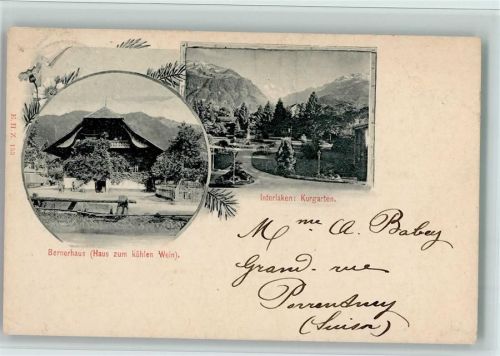 K. H. Z. 113
Interlaken: Kurgarten.
Bernerhaus (Haus zum kühlen Wein).
Mme A. Babey
Grand-rue
Porrentruy
(Suisse)